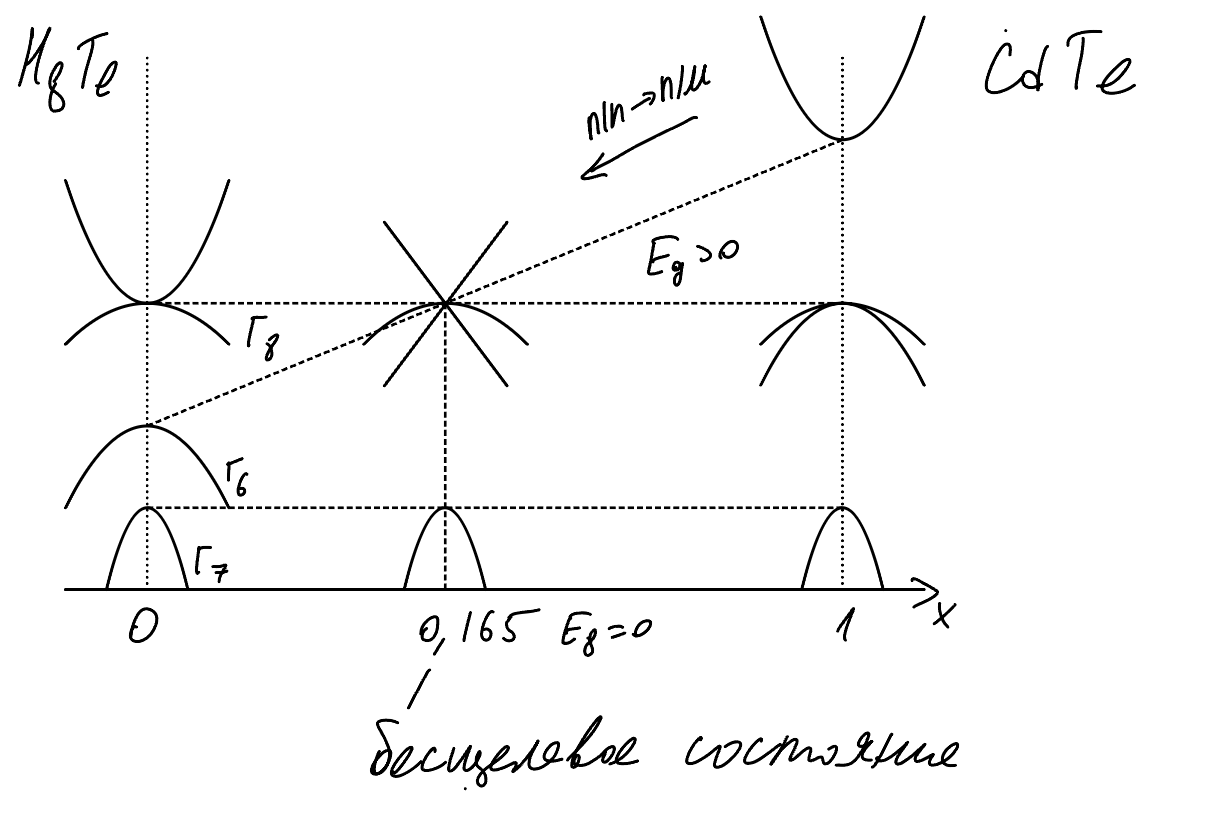 HgTe
CdTe
п/п → п/м
Eg>0
Γ8
Γ6
Γ7
0
0,165 Eg=0
1
x
бесщелевое состояние